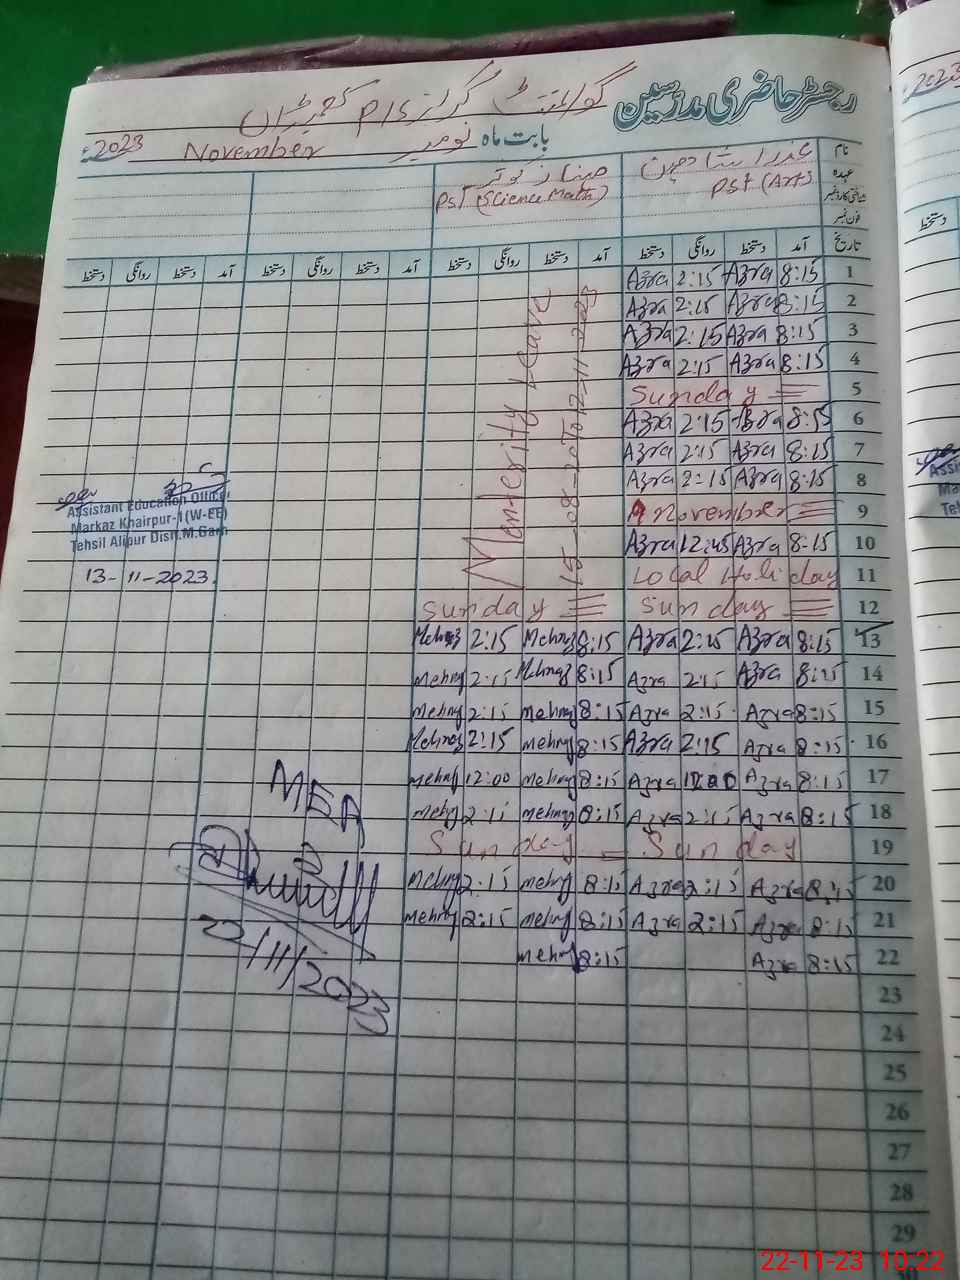 رجسٹر حاضری مدرسین
گورنمنٹ گرلز P/S
بابت ماہ نومبر November 2023ء
نام عذرا شاہین مہناز کوثر
عہدہ PST (Arts) PST (Science Math)
شناختی کارڈ نمبر
فون نمبر
تاریخ آمد دستخط روانگی دستخط آمد دستخط روانگی دستخط آمد دستخط روانگی دستخط آمد دستخط روانگی دستخط
Menterity Leave
15-08-20 To 12-11-2023
Azra 2:15 Azra 8:15 1
Azra 2:15 Azra 8:15 2
Azra 2:15 Azra 8:15 3
Azra 2:15 Azra 8:15 4
Sunday 5
Azra 2:15 Azra 8:15 6
Azra 2:15 Azra 8:15 7
Azra 2:15 Azra 8:15 8
9 November 9
Azra 12:45 Azra 8-15 10
Local Holiday 11
Sunday Sunday 12
Mehnaz 2:15 Mehnaz 8:15 Azra 2:15 Azra 8:15 13
Mehnaz 2:15 Mehnaz 8:15 Azra 2:15 Azra 8:15 14
Mehnaz 2:15 Mehnaz 8:15 Azra 2:15 Azra 8:15 15
Mehnaz 2:15 Mehnaz 8:15 Azra 2:15 Azra 8:15 16
Mehnaz 12:00 Mehnaz 8:15 Azra 12:00 Azra 8:15 17
Mehnaz 2:15 Mehnaz 8:15 Azra 2:15 Azra 8:15 18
Sunday Sunday 19
Mehnaz 2:15 Mehnaz 8:15 Azra 2:15 Azra 8:15 20
Mehnaz 2:15 Mehnaz 8:15 Azra 2:15 Azra 8:15 21
Mehnaz 8:15 Azra 8:15 22
23
24
25
26
27
28
29
Assistant Education Officer
Markaz Khairpur-1(W-EE)
Tehsil Alipur Distt.M.Garh
13-11-2023
MEA
22/11/2023
2023
دستخط
22-11-23 10:22